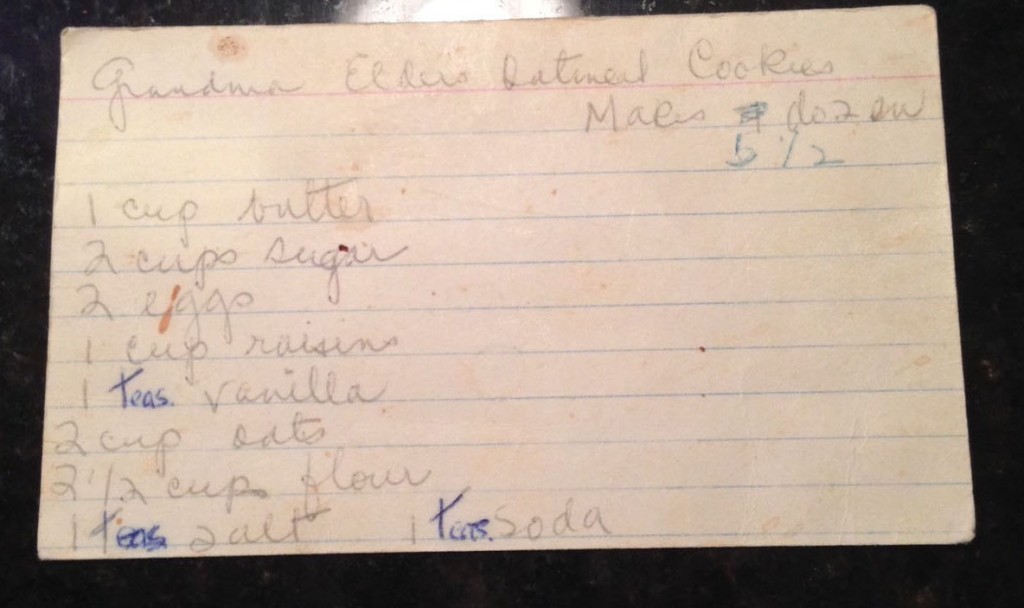 Grandma Elders Oatmeal Cookies
Makes dozen
5 1/2
1 cup butter
2 cups sugar
2 eggs
1 cup raisins
1 teas. vanilla
2 cup oats
2 1/2 cups flour
1 teas salt 1 teas. soda